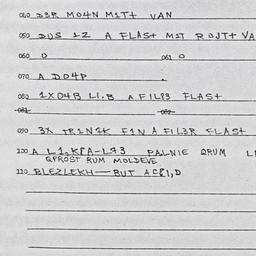 010 D3R MO4N M1T+ VAN
050 DUS 12 A FLAS+ M1T ROJT+ VA
060 O 061 O
070 A DO4P
082 1XO4B LI.B A FIL83 FLAS+
081 082
090 3X TR1N1K F1N A FIL3R FLAS+
100 A L1,KPA-L93 PALNIE QRUM L
QFROST RUM MOLDEVE
110 BLEZLEKH—BUT AC81,D